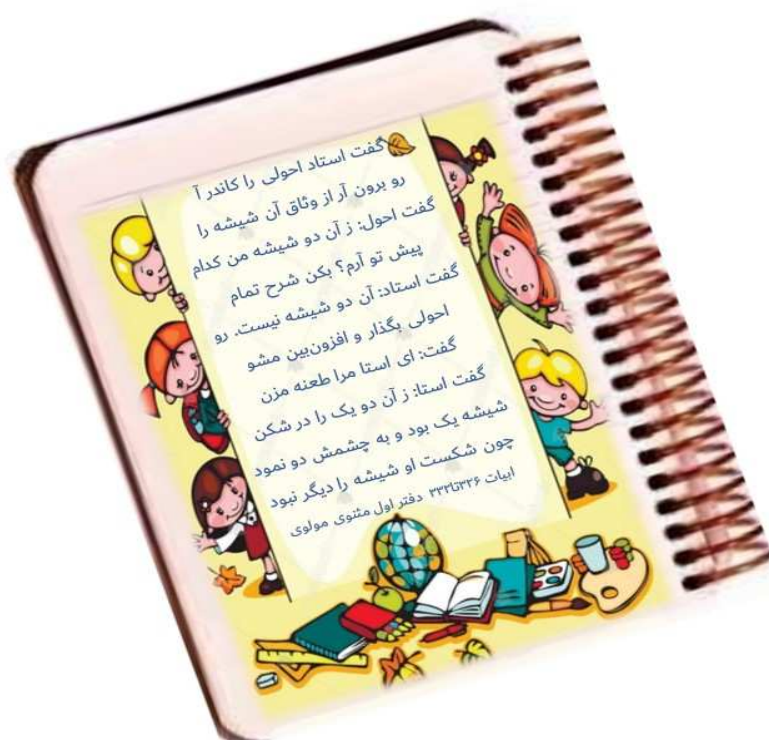 گفت استاد احولی را کاندر آ
رو برون آر از وثاق آن شیشه را
گفت احول: ز آن دو شیشه من کدام
پیش تو آرم؟ بکن شرح تمام
گفت استاد: آن دو شیشه نیست. رو
احولی بگذار و افزون‌بین مشو
گفت: ای استا مرا طعنه مزن
گفت استا: ز آن دو یک را در شکن
شیشه یک بود و به چشمش دو نمود
چون شکست او شیشه را دیگر نبود
ابیات ۳۲۶تا۳۳۲ دفتر اول مثنوی مولوی